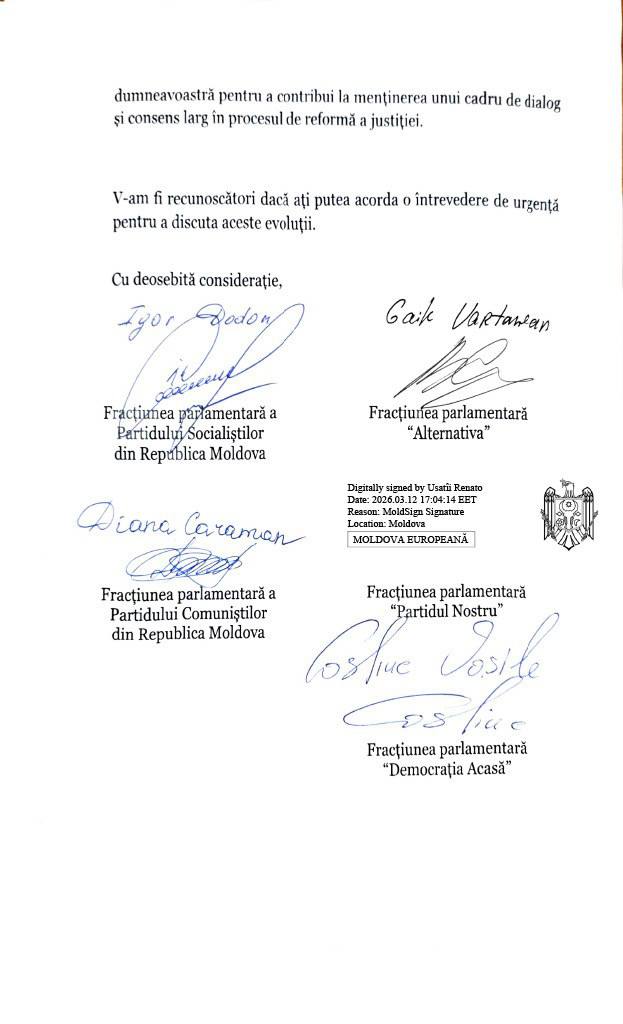 dumneavoastră pentru a contribui la menținerea unui cadru de dialog
și consens larg în procesul de reformă a justiției.
V-am fi recunoscători dacă ați putea acorda o întrevedere de urgență
pentru a discuta aceste evoluții.
Cu deosebită considerație,
Igor Dodon
Fracțiunea parlamentară a
Partidului Socialiștilor
din Republica Moldova
Gaik Vartanean
Fracțiunea parlamentară
“Alternativa”
Diana Caraman
Fracțiunea parlamentară a
Partidului Comuniștilor
din Republica Moldova
Digitally signed by Usatîi Renato
Date: 2026.03.12 17:04:14 EET
Reason: MoldSign Signature
Location: Moldova
MOLDOVA EUROPEANĂ
Fracțiunea parlamentară
“Partidul Nostru”
Costiuc Vasile
Costiuc
Fracțiunea parlamentară
“Democrația Acasă”